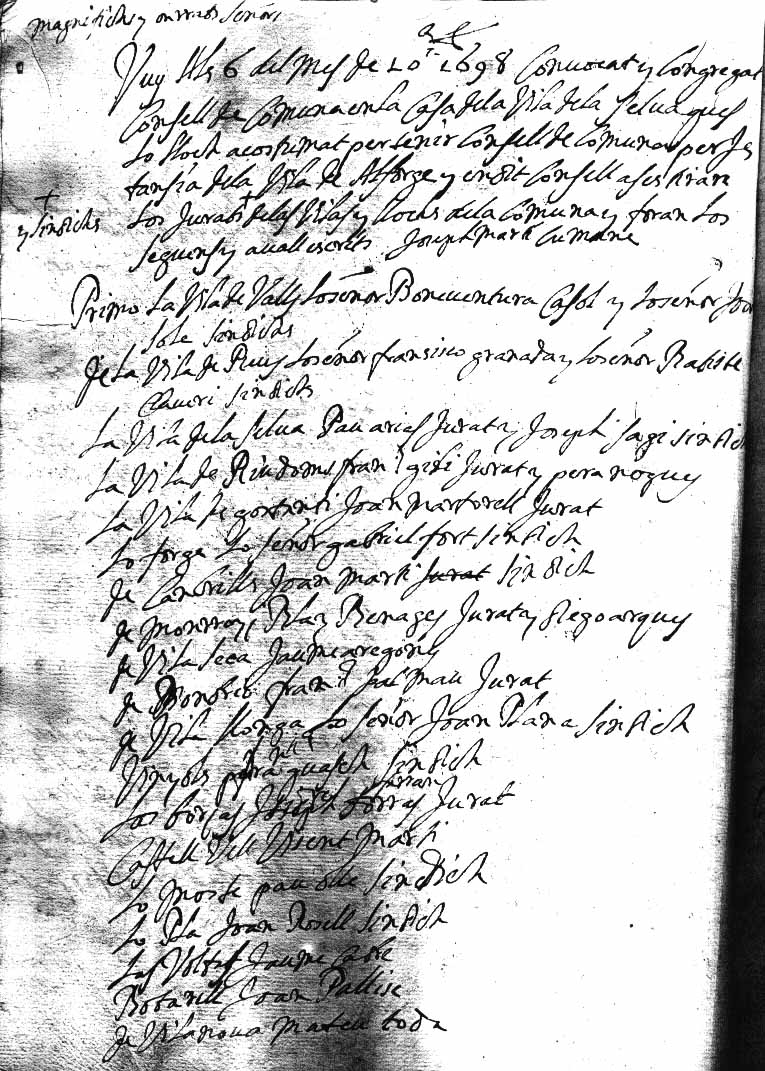 magnifichs y onrrats señors
Vuy Als 6 del Mes de 10r 1698 Convocat y Congregat
Consell de Comuna en la Casa de la Vila de la Selva ques
Lo lloch acostumat per tenir Consell de Comuna per Js
tansia de la Vila de Alforge y en dit Consell asestiran
Los Jurats + de las Vilas y llochs de la Comuna y foran los
+ y sindichs
seguens y avall escrits Joseph Marti Cumane
Primo La Vila de Valls lo señor Bonaventura Casol y lo señor Joa
sole sindichs
de La Vila de Reus lo señor fransisco granada y lo señor Batiste
Claveri sindichs
La Vila de la Selva Pau aries Jurat y Joseph sagi sindich
La Vila de Riudoms fran gili Jurat y pera nogues
La Vila de Joan Martorell Jurat
Lo forge Lo señor gabriel fort sindich
de Cambrills Joan Marti Jurat sindich
de Monrroy Blay Benages Jurat y diego arques
de Vila Seca Jaume aregons
de fran dalmau Jurat
de Vila llonga Lo señor Joan Plana sindich
Vinyols pera guasch sindich
Las borjas Joseph Jurat
Castell Vell Visent Marti
Lo Moste pau olle sindich
Lo Pla Joan Rosell sindich
Las Voltas Jaume Cabre
Botarell Joan Pallise
de Vilanova Mateu toda